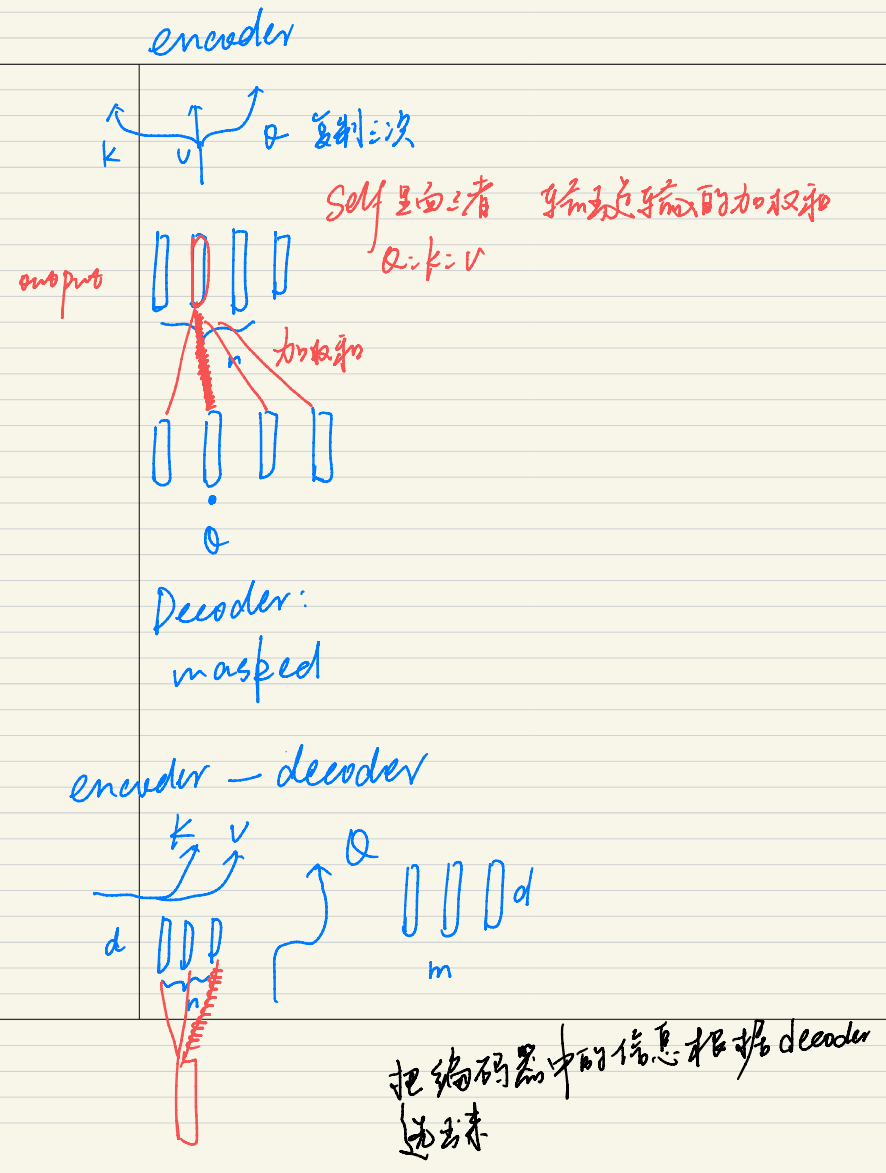 encoder
K V Q 复制三次
Self 里面三者 输出是输入的加权和
Q=K=V
output
n 加权和
Q
Decoder:
masked
encoder — decoder
K V Q
d
d
n
m
把编码器中的信息根据decoder
选出来